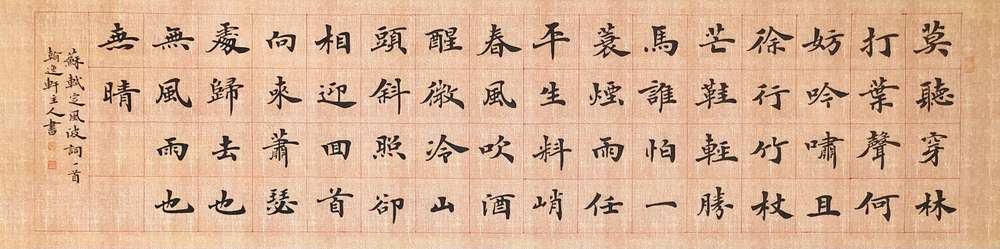 莫聽穿林
打葉聲何
妨吟嘯且
徐行竹杖
芒鞋輕勝
馬誰怕一
蓑煙雨任
平生料峭
春風吹酒
醒微冷山
頭斜照卻
相迎回首
向來蕭瑟
處歸去也
無風雨也
無晴
蘇軾定風波詞一首
翰逸軒主人書